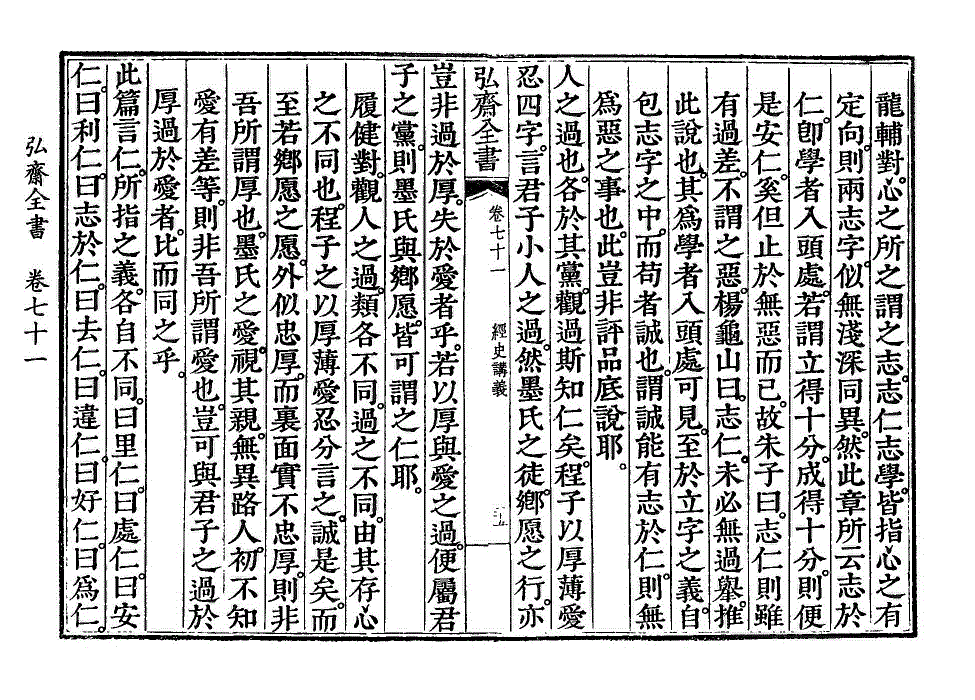 龍輔對。心之所之謂之志。志仁志學。皆指心之有
定向。則兩志字。似無淺深同異。然此章所云志於
仁。卽學者入頭處。若謂立得十分。成得十分。則便
是安仁。奚但止於無惡而已。故朱子曰。志仁則雖
有過差。不謂之惡。楊龜山曰。志仁。未必無過擧。推
此說也。其爲學者入頭處可見。至於立字之義。自
包志字之中。而苟者誠也。謂誠能有志於仁。則無
爲惡之事也。此豈非評品底說耶。
人之過也。各於其黨。觀過斯知仁矣。程子以厚薄愛
忍四字。言君子小人之過。然墨氏之徒。鄕愿之行。亦
弘齋全書 卷七十一 經史講義 二十五
豈非過於厚。失於愛者乎。若以厚與愛之過。便屬君
子之黨。則墨氏與鄕愿。皆可謂之仁耶。
履健對。觀人之過。類各不同。過之不同。由其存心
之不同也。程子之以厚薄愛忍分言之。誠是矣。而
至若鄕愿之愿。外似忠厚。而裏面實不忠厚。則非
吾所謂厚也。墨氏之愛。視其親。無異路人。初不知
愛有差等。則非吾所謂愛也。豈可與君子之過於
厚過於愛者。比而同之乎。
此篇言仁。所指之義。各自不同。曰里仁。曰處仁。曰安
仁。曰利仁。曰志於仁。曰去仁。曰違仁。曰好仁。曰爲仁。
弘齋全書 卷七十一